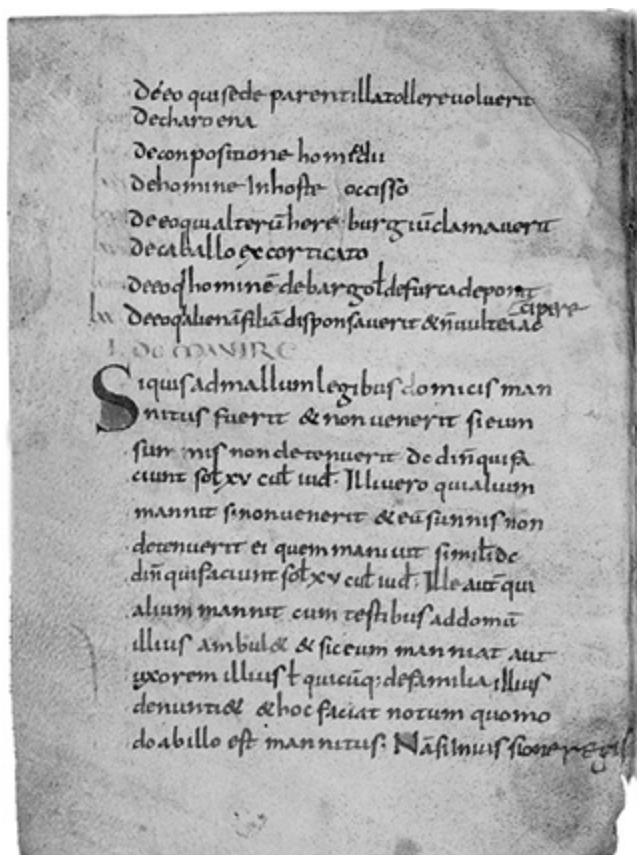 De eo qui se de parentilla tollere voluerit
De charoena
De conpositione homicdii
De homine in hoste occisso
De eo qui alterū hereburgiū clamaverit
De caballo excorticato
De eo q̄ hominē de bargo ł de furca deponit
cipere
lxx De eo q alienā filiā disponsaverit & n̄ vult ei ac
I. De MANIRE
Si quis ad mallum legibus domicis man
nitus fuerit & non venerit si eum
sunnis non detenuerit dc din̄ qui fa
ciunt sol xv cul iud. Ill vero qui alium
mannit si non venerit & eū sunnis non
detenuerit ei quem maniuit simil dc
din̄ qui faciunt sol xv cul iud. Ille aut qui
alium mannit cum testibus ad domū
illius ambul& & sic eum manniat aut
uxorem illius ł quicūq; de familia illius
denunti& & hoc faciat notum quomo
do ab illo est mannitus. Nā si in iussione regis